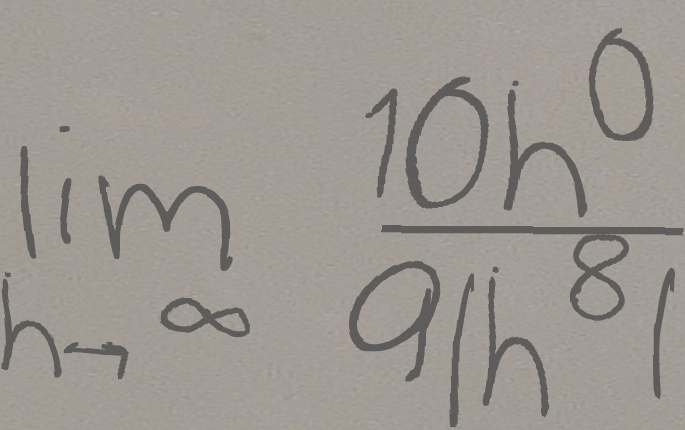 \lim_{h \to \infty} \frac{10h^0}{9|h^8|}